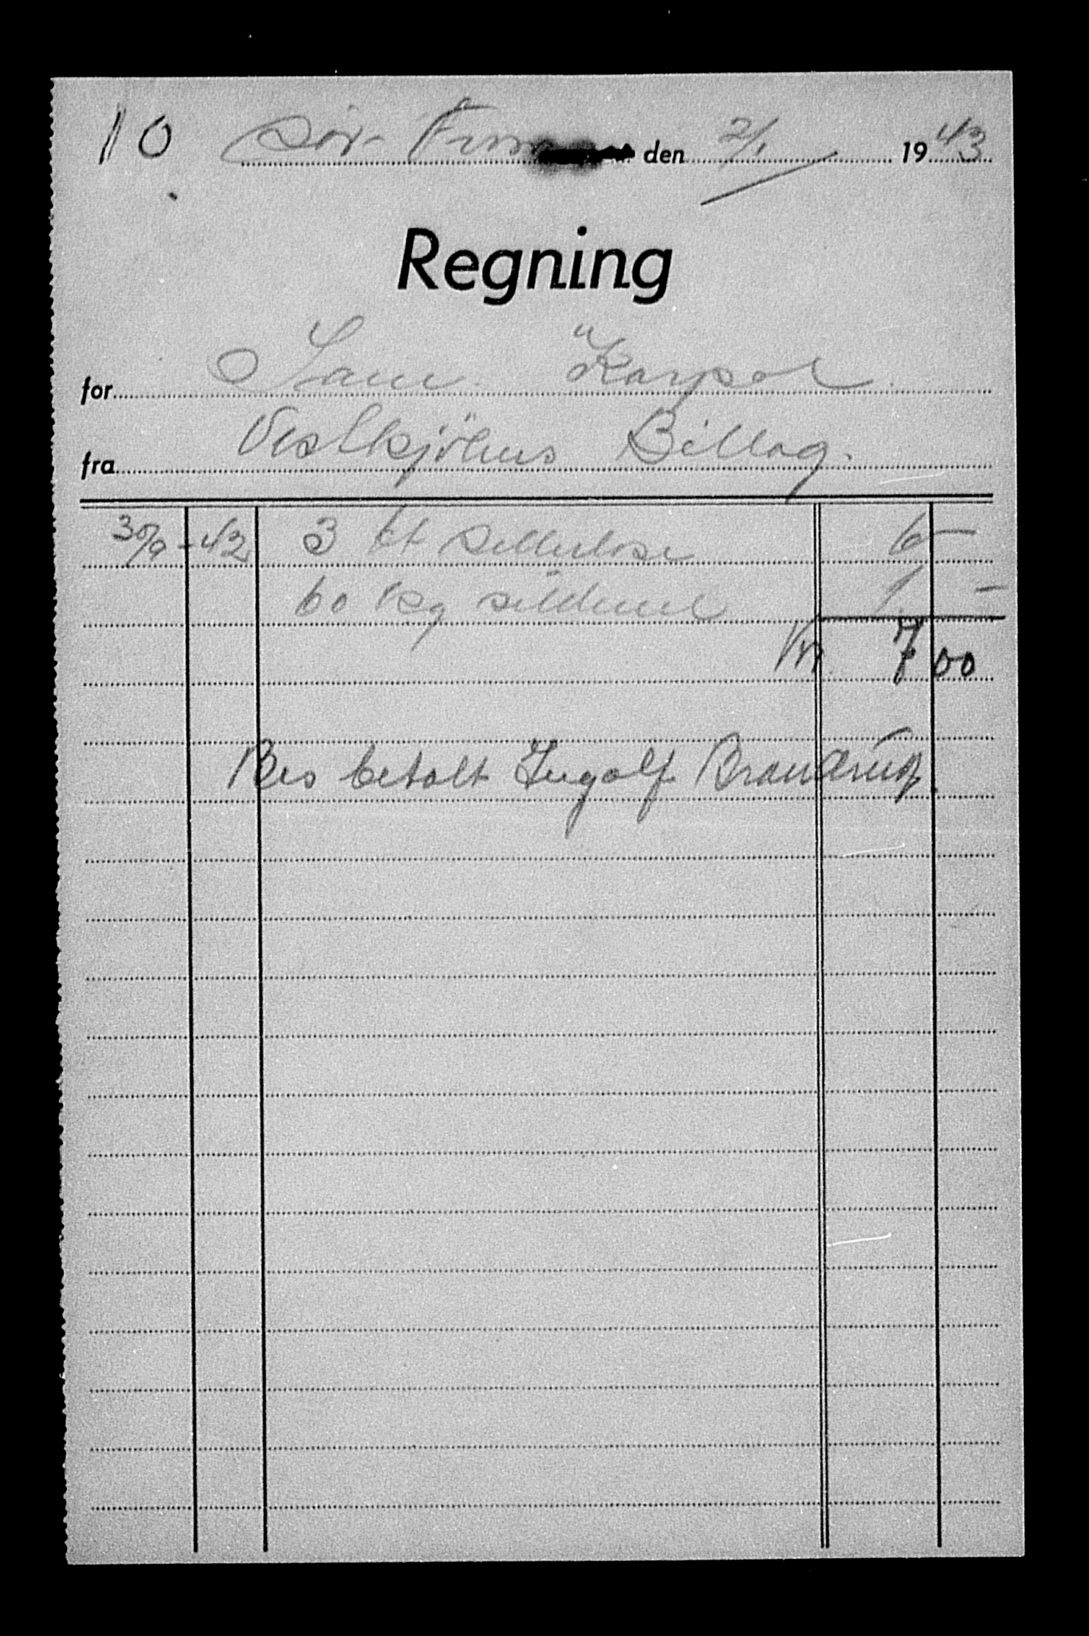 10 Sör- Frön den 2/1 1943
Regning
for Sam. "Karpol
fra Vestkjölens Billag.
30/9 - 42 3 kt Sellulose 6 –
60 kg sildemel 1. –
Kr. 7 00
Bes betalt Ingolf Brandrup.